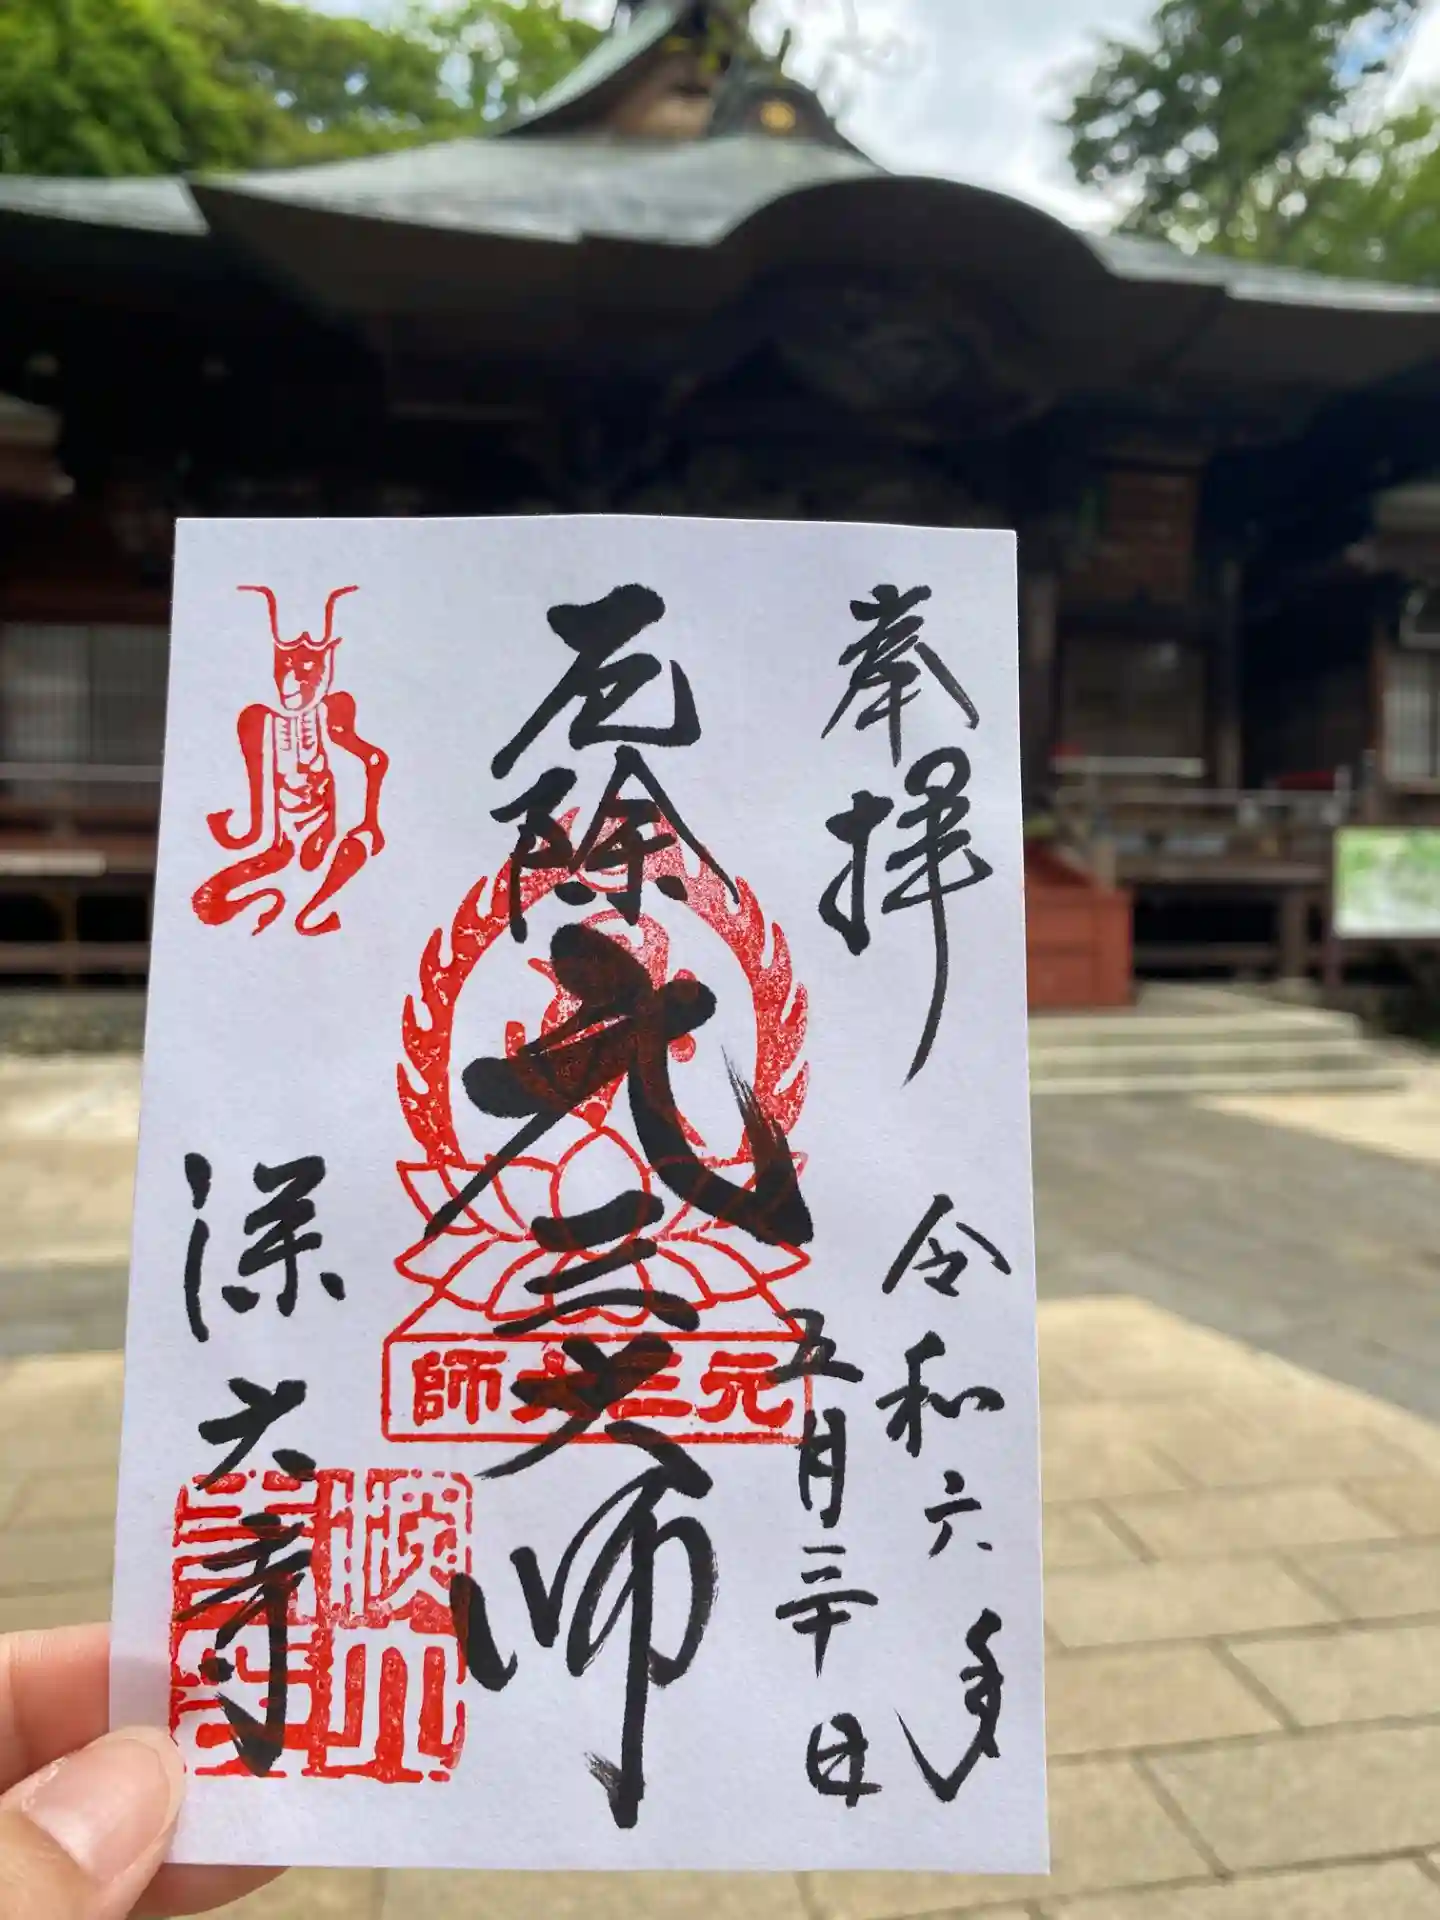 奉拝
令和六年
五月三十日
厄除元三大師
元三大師
深大寺
深大寺